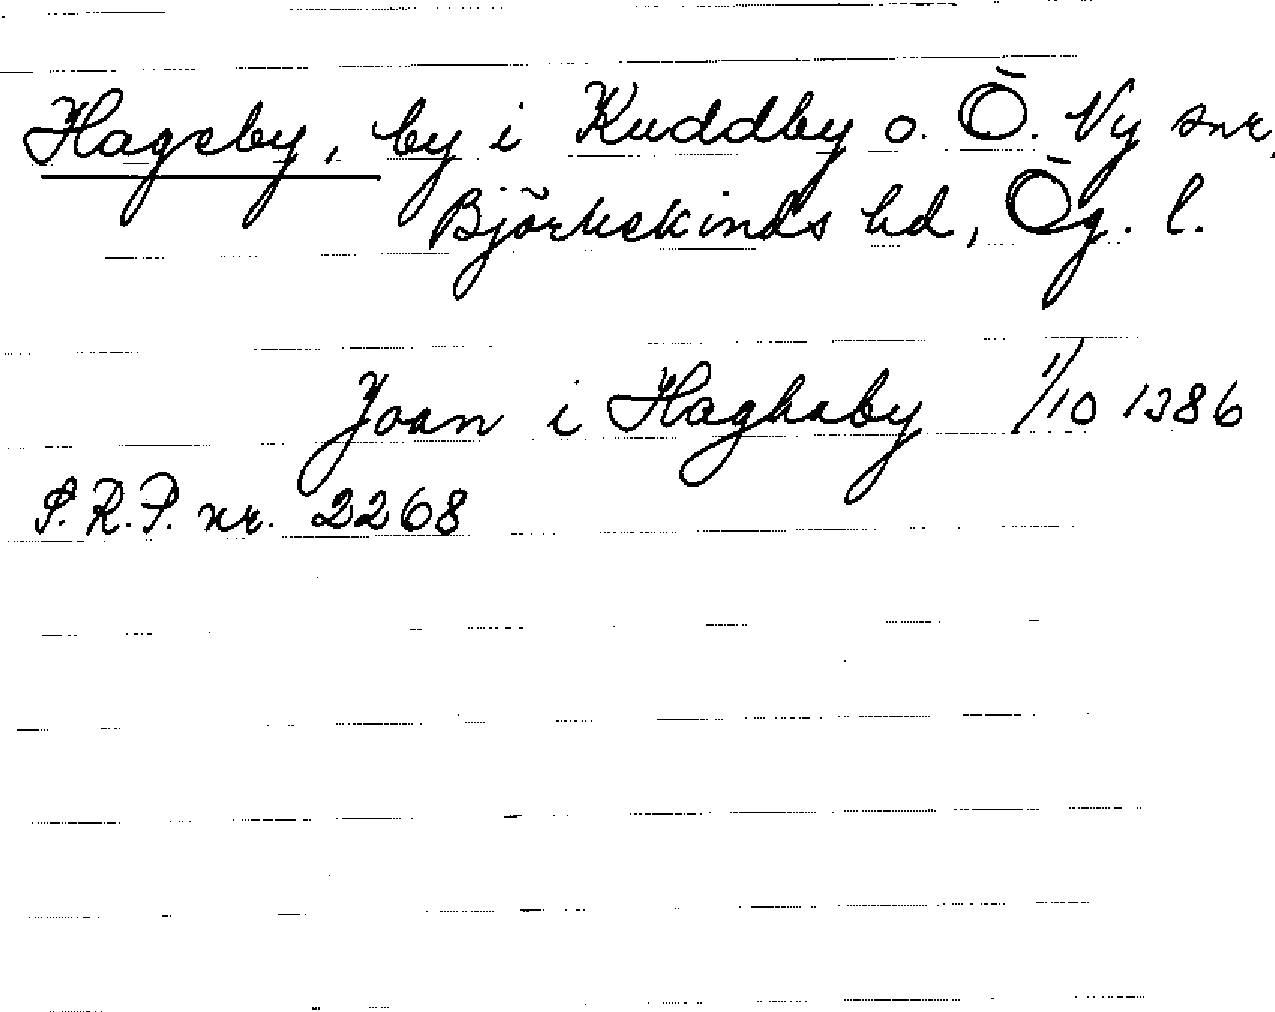 Hagsby, by i Kuddby o. Ö. Ny snr,
Björkekinds hd, Ög. l.
Joan i Haghaby 1/10 1386
S.R.P. nr. 2268